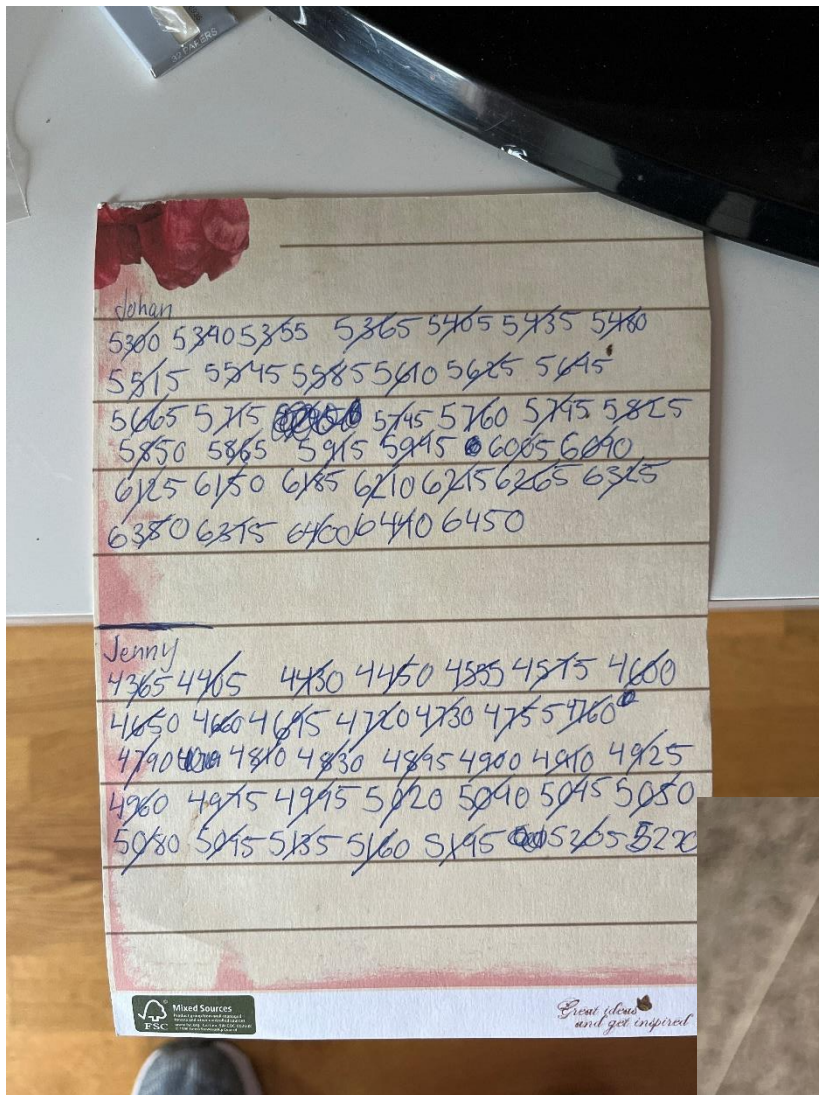 32 PAPERS
Johan
5300 5340 5355 5365 5405 5435 5480
5515 5545 5585 5610 5625 5645
5665 5715 5745 5760 5795 5825
5850 5865 5915 5945 6005 6090
6125 6150 6185 6210 6215 6265 6325
6380 6395 6400 6440 6450
Jenny
4365 4405 4430 4450 4535 4575 4600
4650 4660 4695 4720 4730 4755 4760
4790 4810 4830 4895 4900 4910 4925
4960 4975 4995 5020 5040 5045 5050
5080 5095 5135 5160 5195 5205
FSC
Mixed Sources
Great ideas
and get inspired